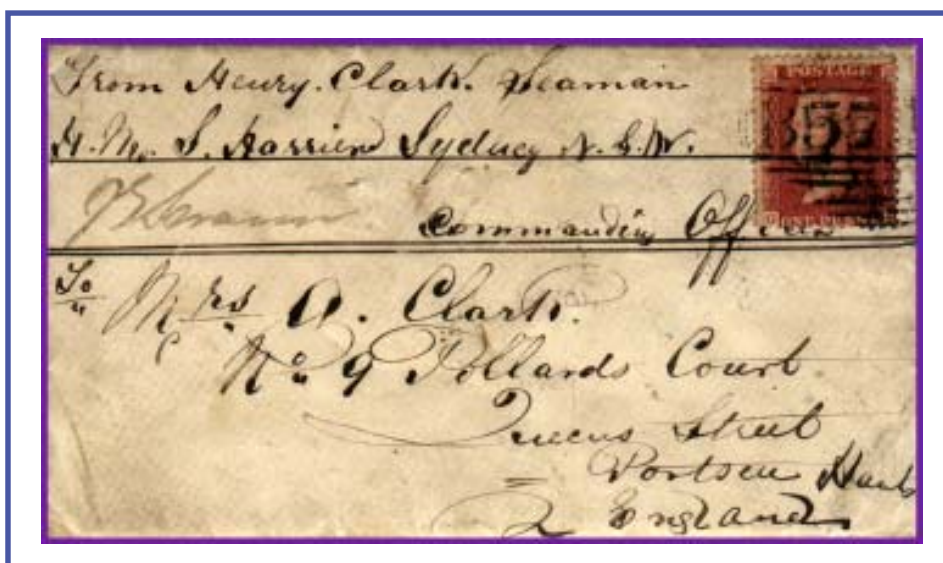 From Henry. Clark. Seaman
H. M. S. Harrier Sydney N. S. W.
Commanding Officer
To
Mrs A. Clark.
No 9 Pollards Court
Queens Street
Portsea Hants
England
POSTAGE
ONE PENNY